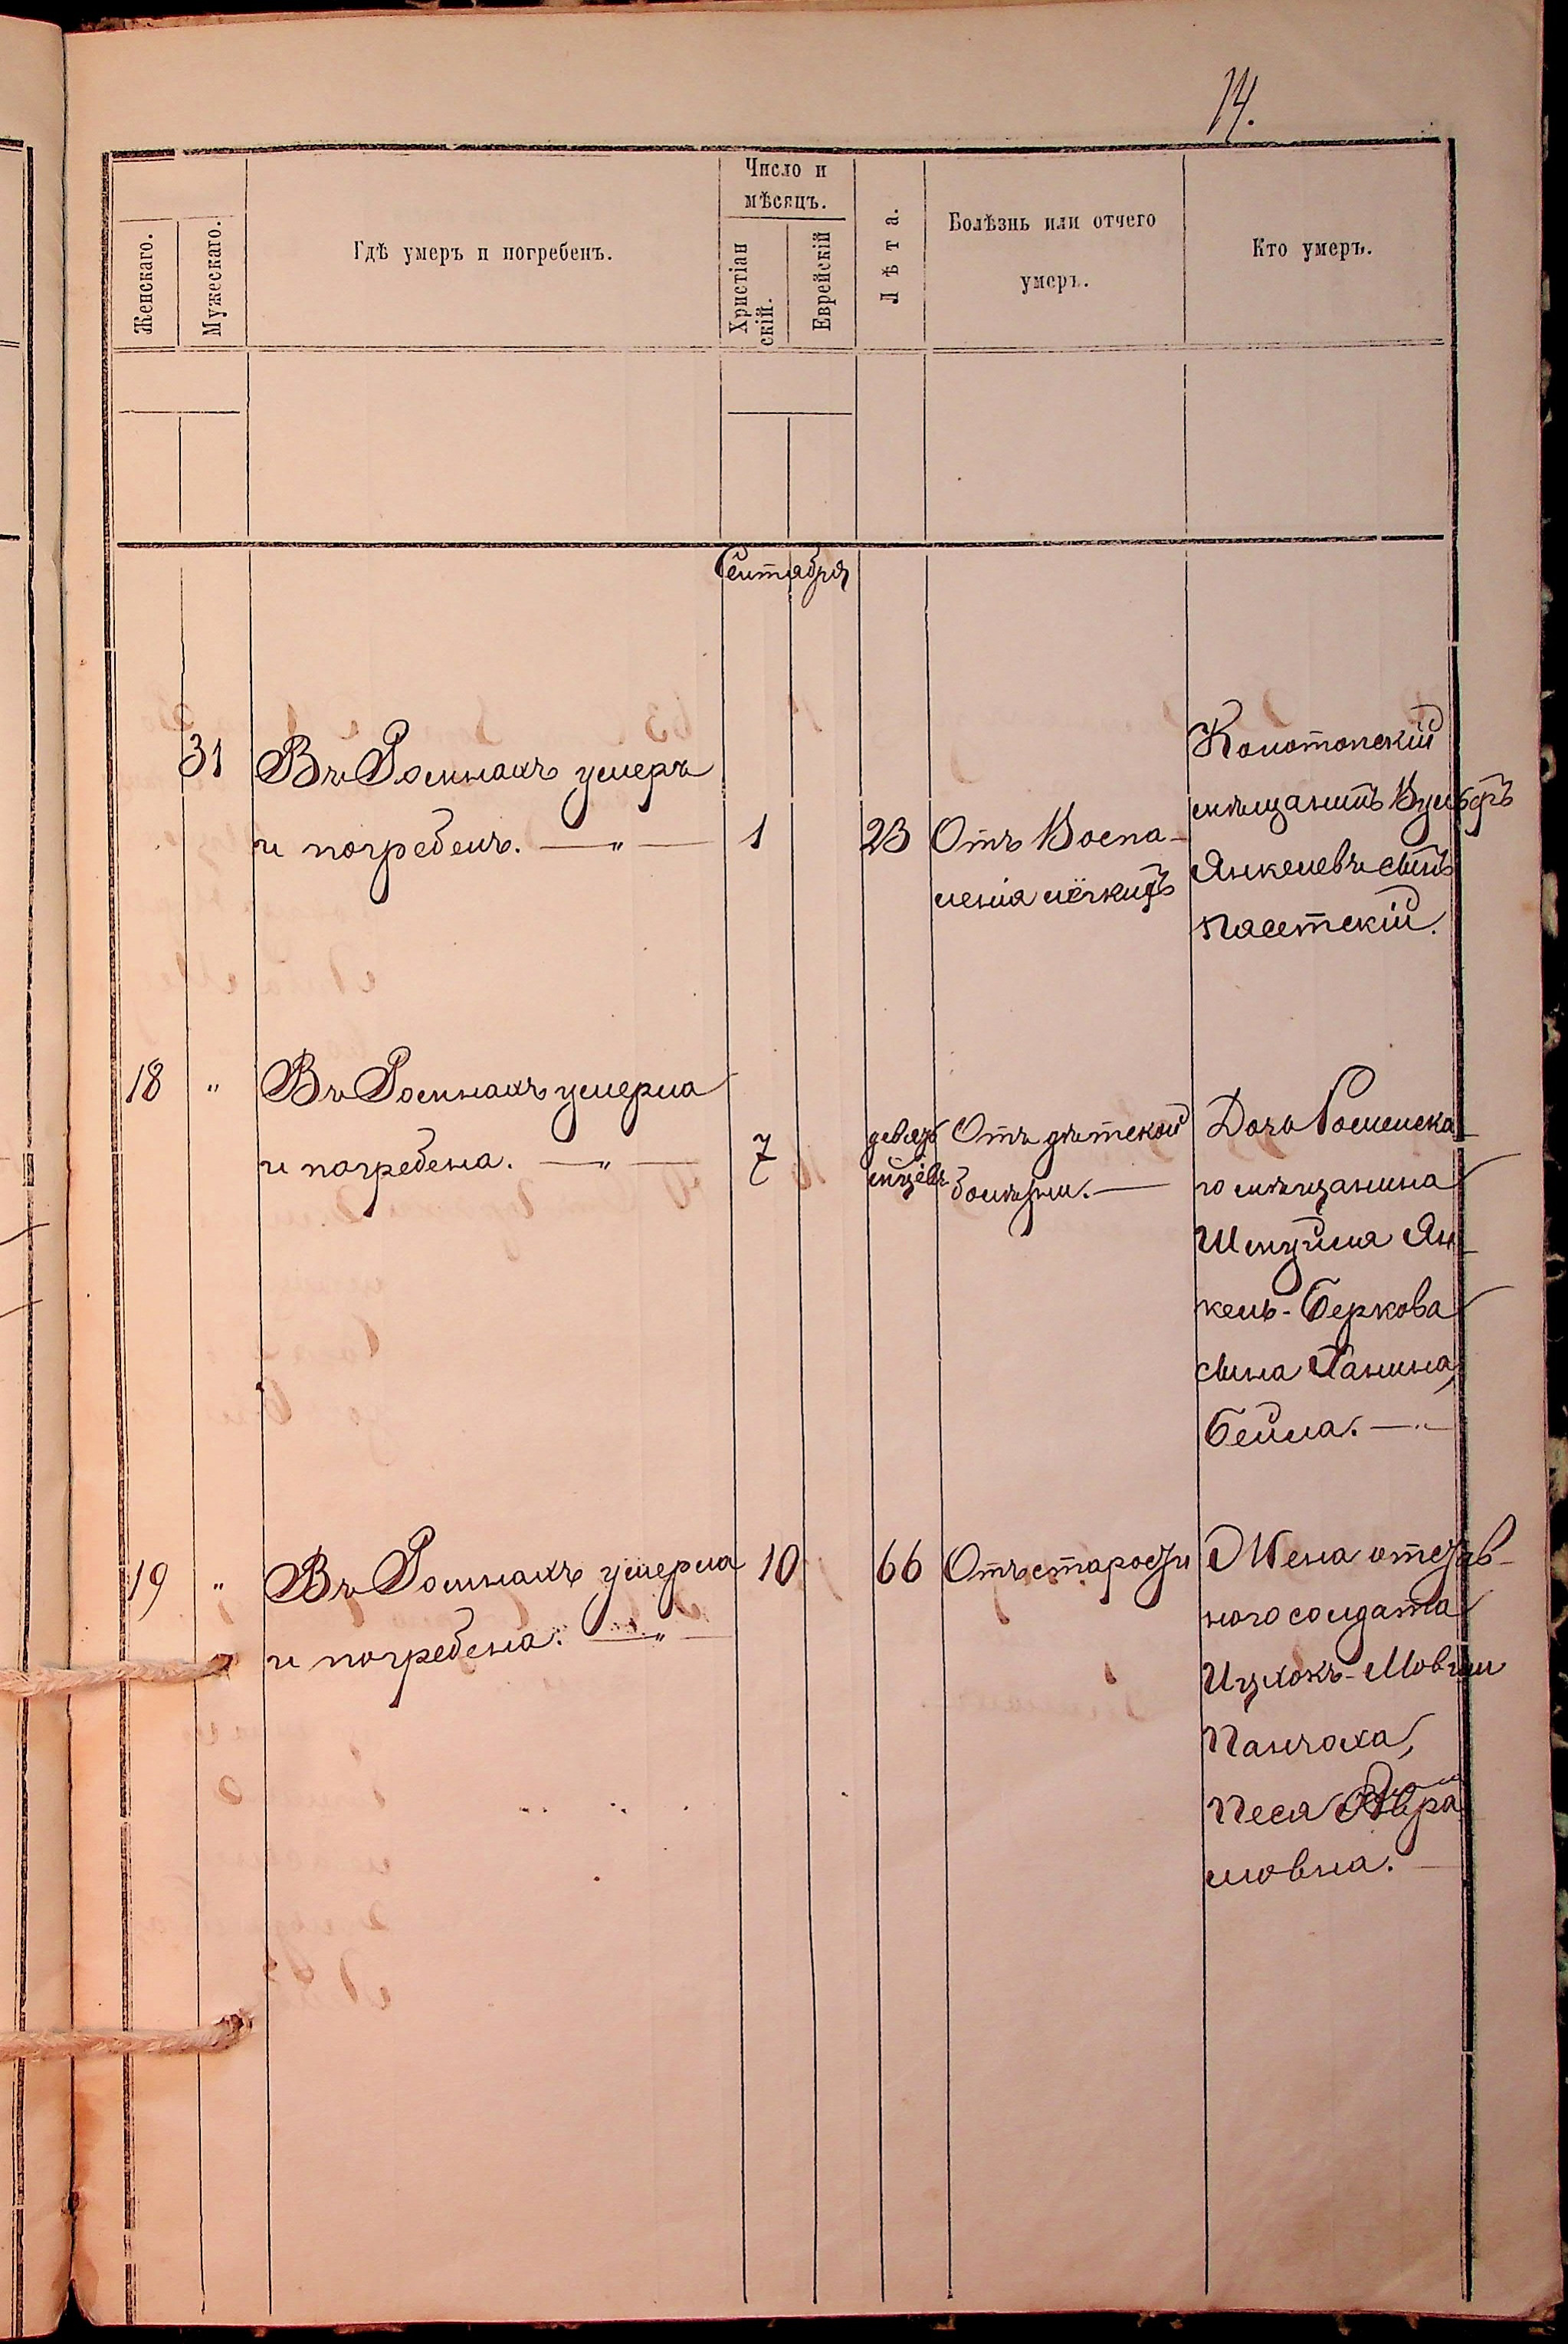 14.
Женскаго.
Мужескаго.
Гдѣ умеръ и погребенъ.
Число и
мѣсяцъ.
Христіан
скій.
Еврейскій
Лѣта.
Болѣзнь или отчего
умеръ.
Кто умеръ.
Сентября
31
Въ Ромнахъ умеръ
и погребенъ. — " —
1
23
Отъ Воспа-
ленія лёгкихъ
Конотопскій
мѣщанинъ
Янкелевъ сынъ
18 "
Въ Ромнахъ умерла
и погребена. — " —
7
девять
мѣсцевъ
Отъ дѣтской
болѣзни. —
Дочь Роменска-
го мѣщанина
Шмуйла Ян-
кель-Беркова
сына Ганина,
Бейла. — " —
19 "
Въ Ромнахъ умерла
и погребена. — " —
10
66
Отъ старости
Жена отстав-
ного солдата
Ицхокъ-Мовши
Панчоха,
Песя Абра
мовна. —